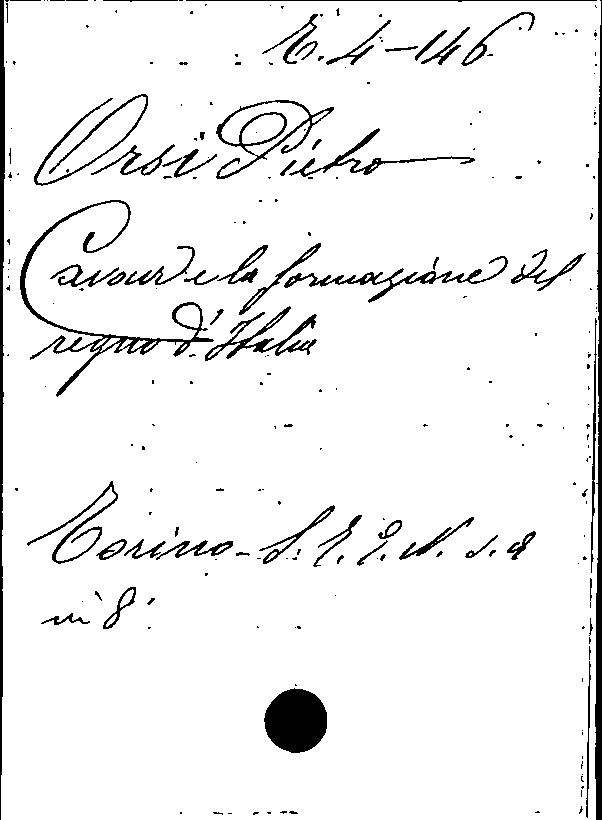 E. 4-146
Orsi Pietro
Cavour e la formazione del
regno d'Italia
Torino - S. T. E. N. s. a
in 8°